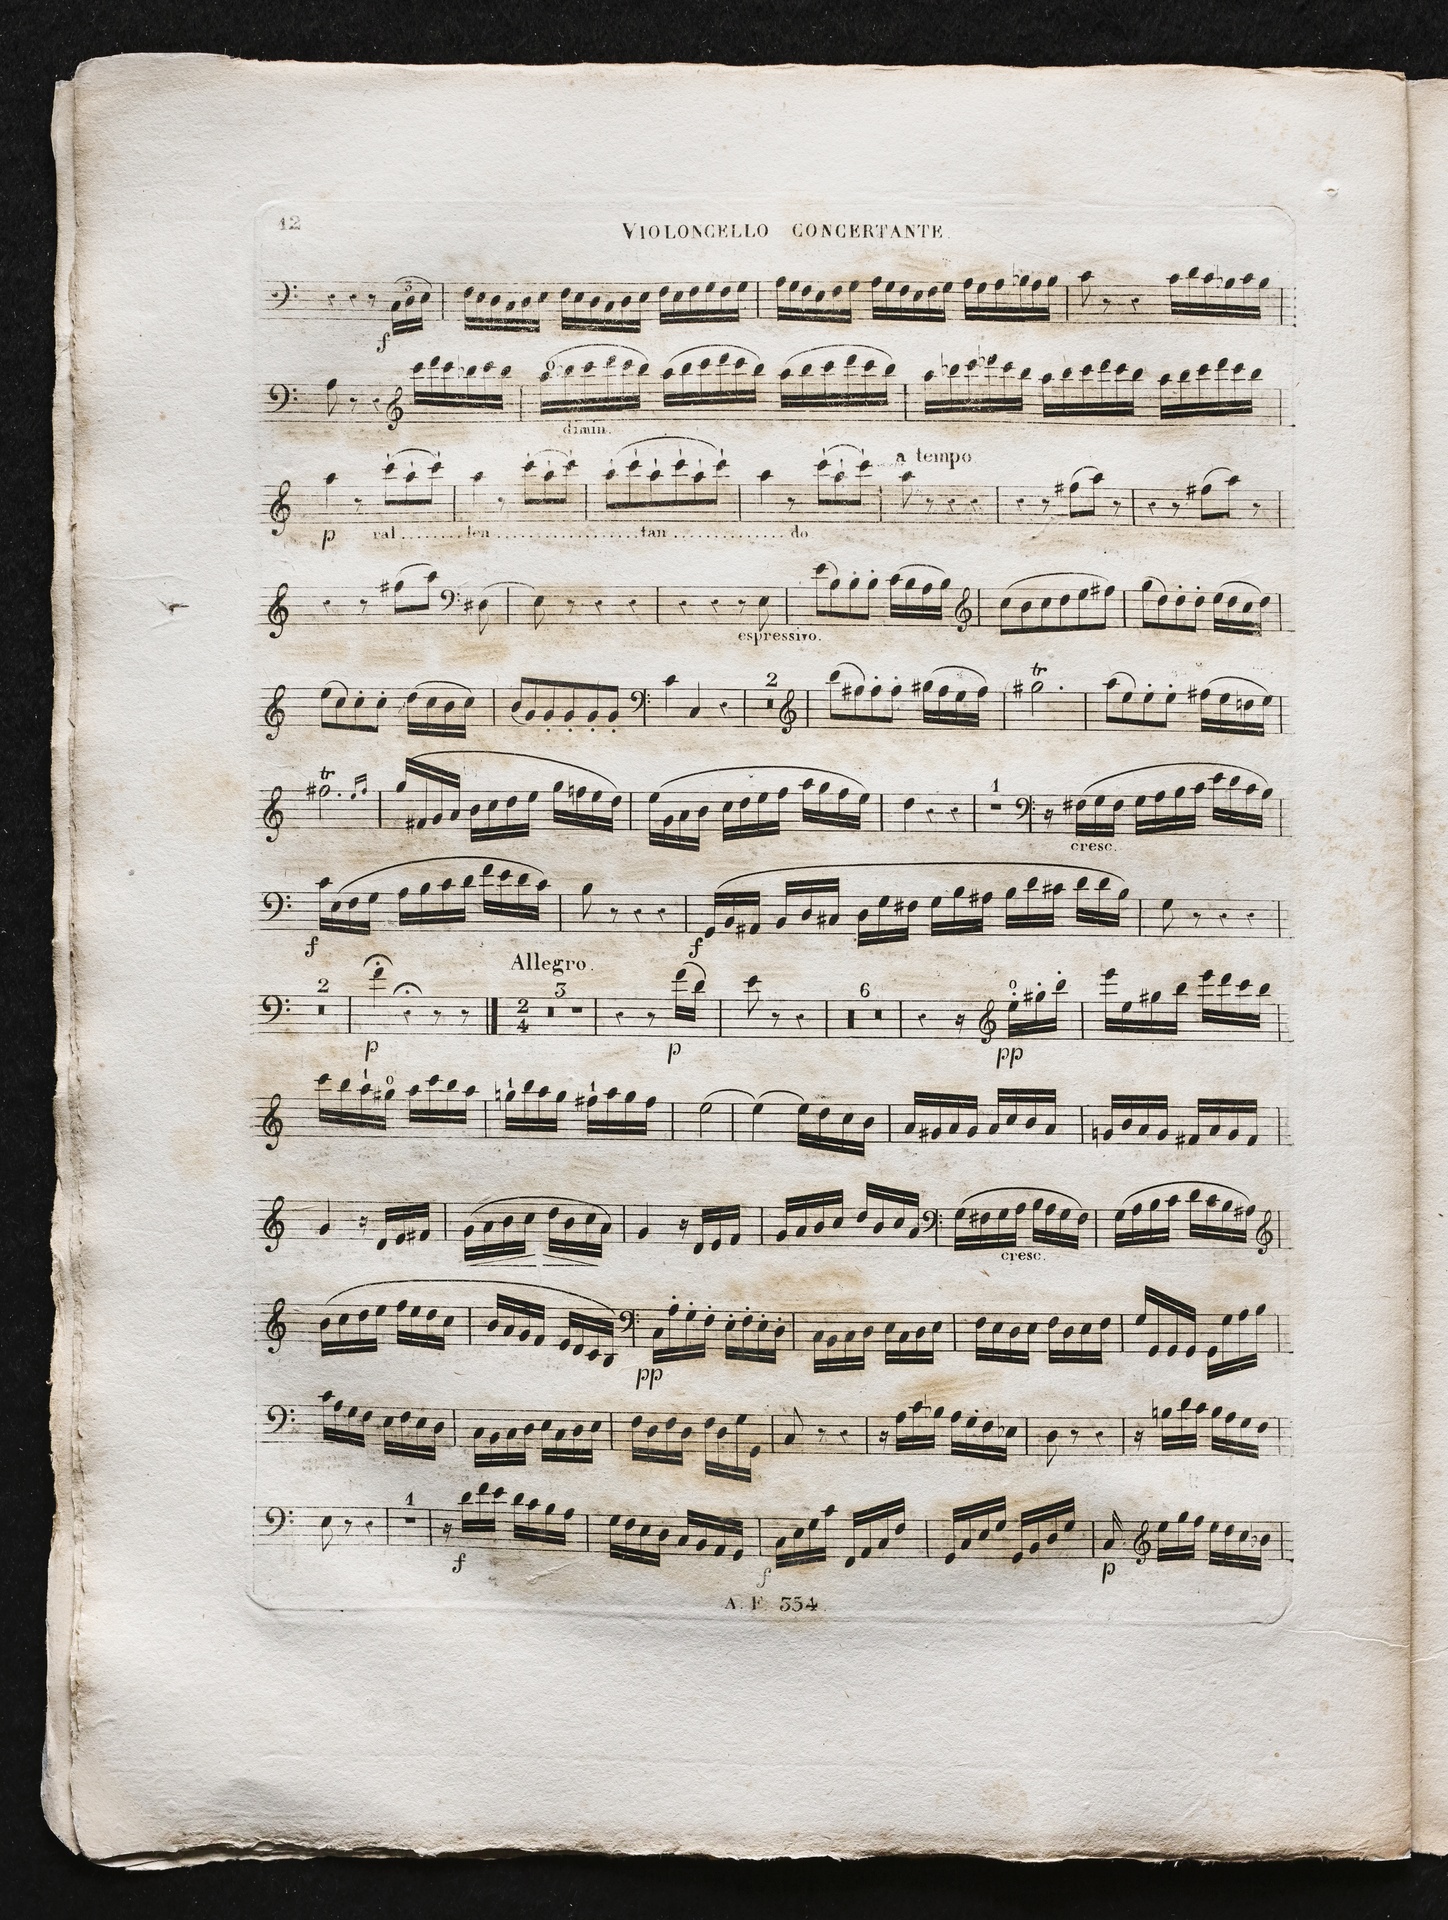 12
VIOLONCELLO CONCERTANTE
3
f
0
dimin.
a tempo
p ral........len.................tan.............do
espressivo.
2
tr
tr
1
cresc.
f
f
Allegro.
2
2 4
3
6
0
p
p
pp
1 0 1 1
cresc.
pp
1
f
f
p
A. F. 354